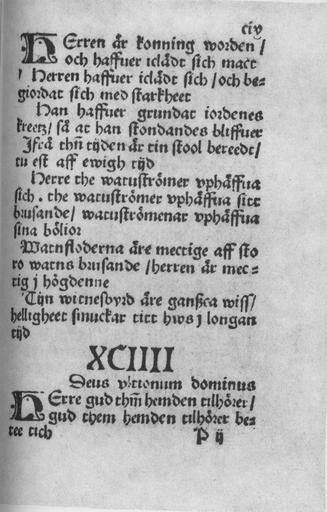 ciij
HErren är konning worden/
och haffuer iclädt sich mact
Herren haffuer iclädt sich/och be-
giordat sich med starkheet
Han haffuer grundat iordenes
kreetz/så at han stondandes bliffuer
Ifrå thn̄ tijden är tin stool bereedt/
tu est aff ewigh tijd
Herre the watuströmer vphäffua
sich. the watuströmer vphäffua sitt
brusande/watuströmenar vphäffua
sina bölior
Watnfloderna äre mectige aff sto
ro watns brusande/herren är mec-
tig j högdenne
Tijn witnesbyrd äre gansca wiss/
helligheet smuckar titt hws j longan
tijd
XCIIII
Deus vltionum dominus
HErre gud thm̄ hemden tilhörer/
gud them hemden tilhörer be-
tee tich
P ij